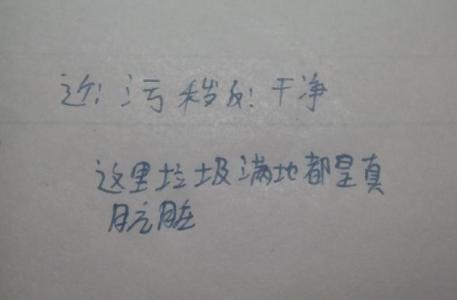 近: 污秽反: 干净
这里垃圾满地都是真
肮脏